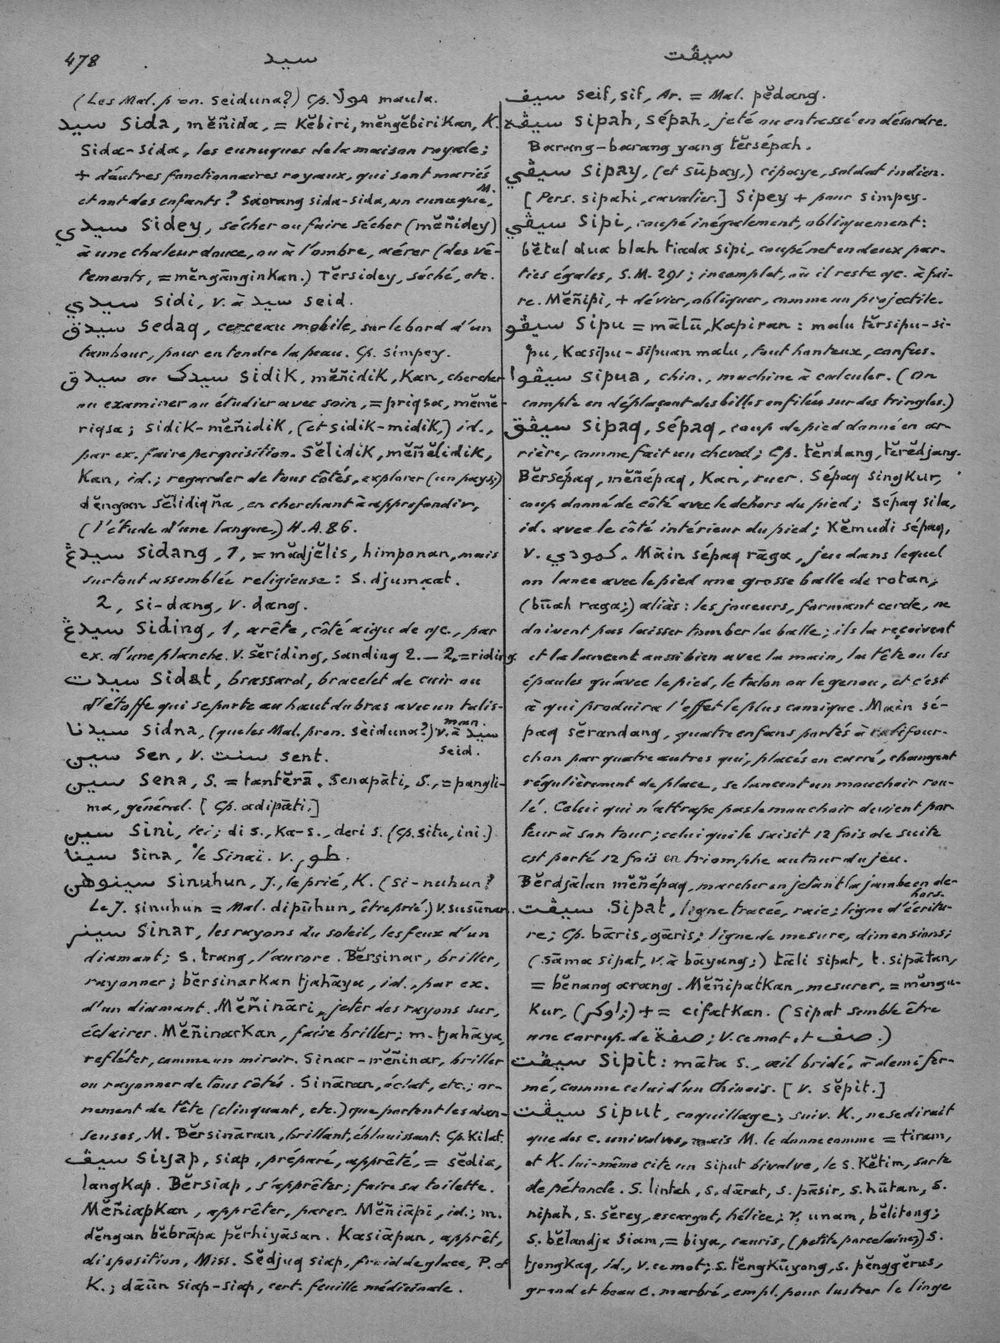 478 سيد سيڤت
(Les Mal. pron. seiduna?) Cp. مولا maula.
سيد sida, mĕñida, = Kĕbiri, mĕngĕbiriKan, K.
Sida-sida, les eunuques de la maison royale;
+ d'autres fonctionnaires royaux, qui sont mariés
et ont des enfants? Saorang sida-sida, un eunuque, M.
سيدي sidey, sécher ou faire sécher (mĕñidey)
à une chaleur douce, ou à l'ombre, aérer (des vê-
tements, = mĕngānginKan.) Tĕrsidey, séché, etc.
سيدي sidi, v. à سيد seid.
سيدق sedaq, cerceau mobile, sur le bord d'un
tambour, pour en tendre la peau. Cp. simpey.
سيدق ou سيدک sidiK, mĕñidiK, Kan, chercher
ou examiner ou étudier avec soin, = priqsa, mĕmĕ-
riqsa; sidiK-mĕñidiK, (et sidiK-midiK,) id.,
par ex. faire perquisition. SĕlidiK, mĕñĕlidiK,
Kan, id.; regarder de tous côtés, explorer (un pays;)
dĕngan sĕlidiqña, en cherchant à approfondir,
(l'étude d'une langue,) H.A. 86.
سيدڠ sidang, 1, = mādjĕlis, himponan, mais
surtout assemblée religieuse: S. djumaat.
2, si-dang, v. dang.
سيدڠ siding, 1, arête, côté aigu de qc., par
ex. d'une planche. V. sĕriding, sanding 2. — 2, = riding.
سيدت sidat, brassard, bracelet de cuir ou
d'étoffe qui se porte au haut du bras avec un talis-
man.
سيدنا sidna, (que les Mal. pron. sèiduna?) v. à سيد
seid.
سين sen, v. سنت sent.
سين sena, S. = tantĕrā. Senapāti, S., = pangli-
ma, général. [Cp. adipāti.]
سين sini, ici; di s., Ka-s., deri s. (Cp. situ, ini.)
سينا sina, le Sinaï. v. طور.
سينوهن sinuhun, J., le prié, K. (Si-nuhun?
Le J. sinuhun = Mal. dipūhun, être prié.) V. susūnan.
سينر sinar, les rayons du soleil, les feux d'un
diamant; s. trang, l'aurore. Bĕrsinar, briller,
rayonner; bĕrsinarKan tjahāya, id., par ex.
d'un diamant. Mĕñināri, jeter des rayons sur,
éclairer. MĕñinarKan, faire briller; m. tjahāya,
refléter, comme un miroir. Sinar-mĕñinar, briller
ou rayonner de tous côtés. Sināran, éclat, etc.; or-
nement de tête (clinquant, etc.) que portent les dan-
seuses, M. Bĕrsināran, brillant, éblouissant. Cp. Kilat.
سيڤ siyap, siap, préparé, apprêté, = sĕdia,
langKap. Bĕrsiap, s'apprêter; faire sa toilette.
MĕñiapKan, apprêter, parer. Mĕñiāpi, id.; m.
dĕngan bĕbrāpa pĕrhiyāsan. Kasiāpan, apprêt,
disposition, Miss. Sĕdjuq siap, froid de glace, P. et
K.; dāūn siap-siap, cert. feuille médicinale.
سيف seif, sif, Ar. = Mal. pĕdang.
سيڤه sipah, sépah, jeté ou entassé en désordre.
Barang-barang yang tĕrsépah.
سيڤي sipay, (et sūpay,) cipaye, soldat indien.
[Pers. sipahi, cavalier.] Sipey + pour simpey.
سيڤي sipi, coupé inégalement, obliquement:
bĕtul dua blah tiada sipi, coupé net en deux par-
ties égales, S.M. 291; incomplet, où il reste qc. à fai-
re. Mĕñipi, + dévier, obliquer, comme un projectile.
سيڤو sipu = mālū, Kapiran: malu tĕrsipu-si-
pu, Kasipu-sipuan malu, tout honteux, confus.
سيڤوا sipua, chin., machine à calculer. (On
compte en déplaçant des billes enfilées sur des tringles.)
سيڤق sipaq, sépaq, coup de pied donné en ar-
rière, comme fait un cheval; Cp. tĕndang, tĕrĕdjang.
Bĕrsépaq, mĕñépaq, Kan, ruer. Sépaq singKur,
coup donné de côté avec le dehors du pied; sépaq sila,
id. avec le côté intérieur du pied; Kĕmudi sépaq,
v. کمودي. Māin sépaq rāga, jeu dans lequel
on lance avec le pied une grosse balle de rotan,
(būah raga;) aliàs: les joueurs, formant cercle, ne
doivent pas laisser tomber la balle; ils la reçoivent
et la lancent aussi bien avec la main, la tête ou les
épaules qu'avec le pied, le talon ou le genou, et c'est
à qui produira l'effet le plus comique. Main sé-
paq sĕrandang, quatre enfans portés à califour-
chon par quatre autres qui, placés en carré, changent
régulièrement de place, se lancent un mouchoir rou-
lé. Celui qui n'attrape pas le mouchoir devient por-
teur à son tour; celui qui le saisit 12 fois de suite
est porté 12 fois en triomphe autour du jeu.
Bĕrdjālan mĕñépaq, marcher en jetant la jambe en de-
hors.
سيڤت sipat, ligne tracée, raie; ligne d'écritu-
re; Cp. bāris, gāris; ligne de mesure, dimensions;
(sāma sipat, v. à bāyang;) tāli sipat, t. sipātan,
= bĕnang arang. MĕñipatKan, mesurer, = mĕngu-
Kur, (اوکر;) + = cifatKan. (Sipat semble être
une corrup. de صفة; V. ce mot et صف.)
سيڤت sipit: māta s., œil bridé, à demi fer-
mé, comme celui d'un Chinois. [V. sĕpit.]
سيڤت siput, coquillage; suiv. K., ne se dirait
que des c. univalves, mais M. le donne comme = tiram,
et K. lui-même cite un siput bivalve, le s. Kĕtim, sorte
de pétoncle. S. lintah, s. dārat, s. pāsir, s. hūtan, s.
nipah, s. sĕrey, escargot, hélice; V. unam, bĕlitong;
s. bĕlandja siam, = biya, cauris, (petite porcelaine;) s.
tjongKaq, id., V. ce mot; s. tĕngKūyong, s. pĕnggĕrus,
grand et beau c. marbré, empl. pour lustrer le linge